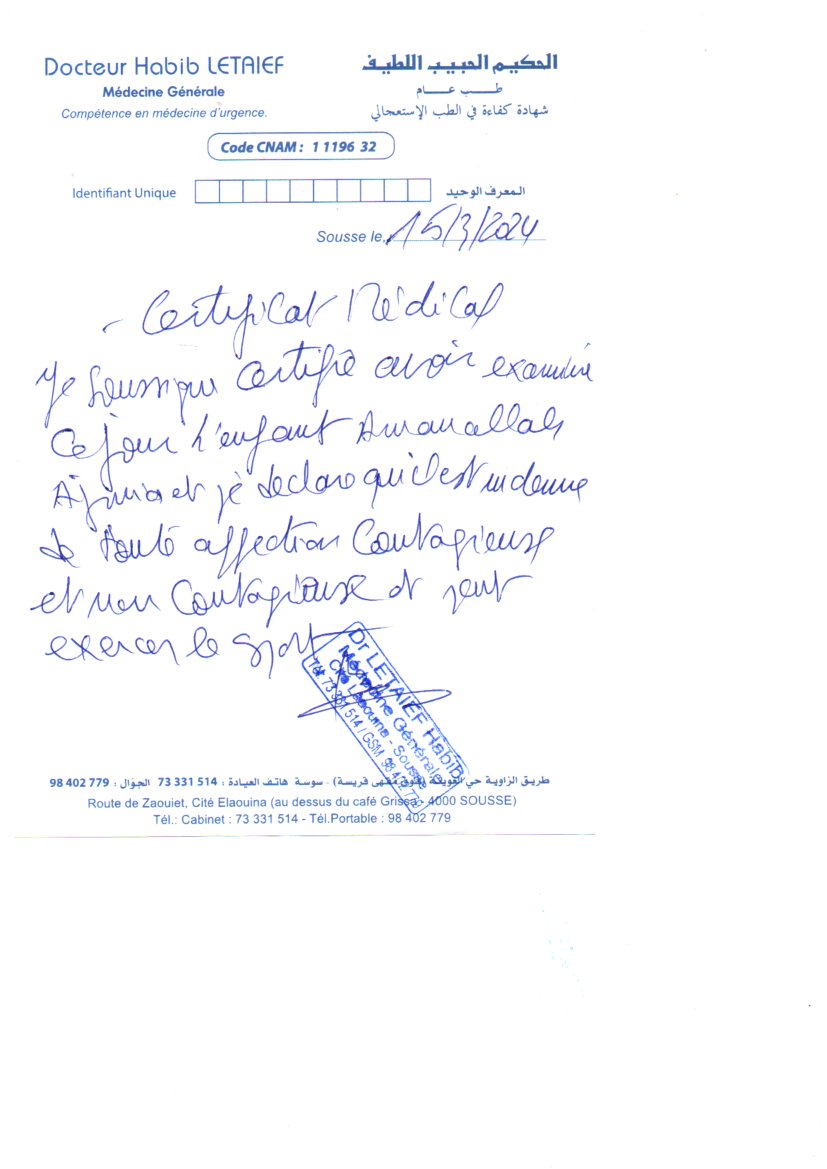 Docteur Habib LETAIEF
الحكيم الحبيب اللطيف
Médecine Générale
طب عام
Compétence en médecine d'urgence.
شهادة كفاءة في الطب الإستعجالي
Code CNAM : 1 1196 32
Identifiant Unique
المعرف الوحيد
Sousse le, 15/3/2024
- Certificat Médical
Je soussigné certifie avoir examiné
Ce jour l'enfant Amanallah
Ajmia et je declare qu'il est indemne
de toute affection Contagieuse
et non Contagieuse et peut
exercer le sport
Dr LETAIEF Habib
Médecine Générale
Cité Laouina - Sousse
Tél 73 331 514 / GSM 98 402 779
طريق الزاوية حي العوينة (فوق مقهى قريسة) - سوسة هاتف العيادة : 514 331 73 الجوال : 779 402 98
Route de Zaouiet, Cité Elaouina (au dessus du café Grissa - 4000 SOUSSE)
Tél.: Cabinet : 73 331 514 - Tél.Portable : 98 402 779